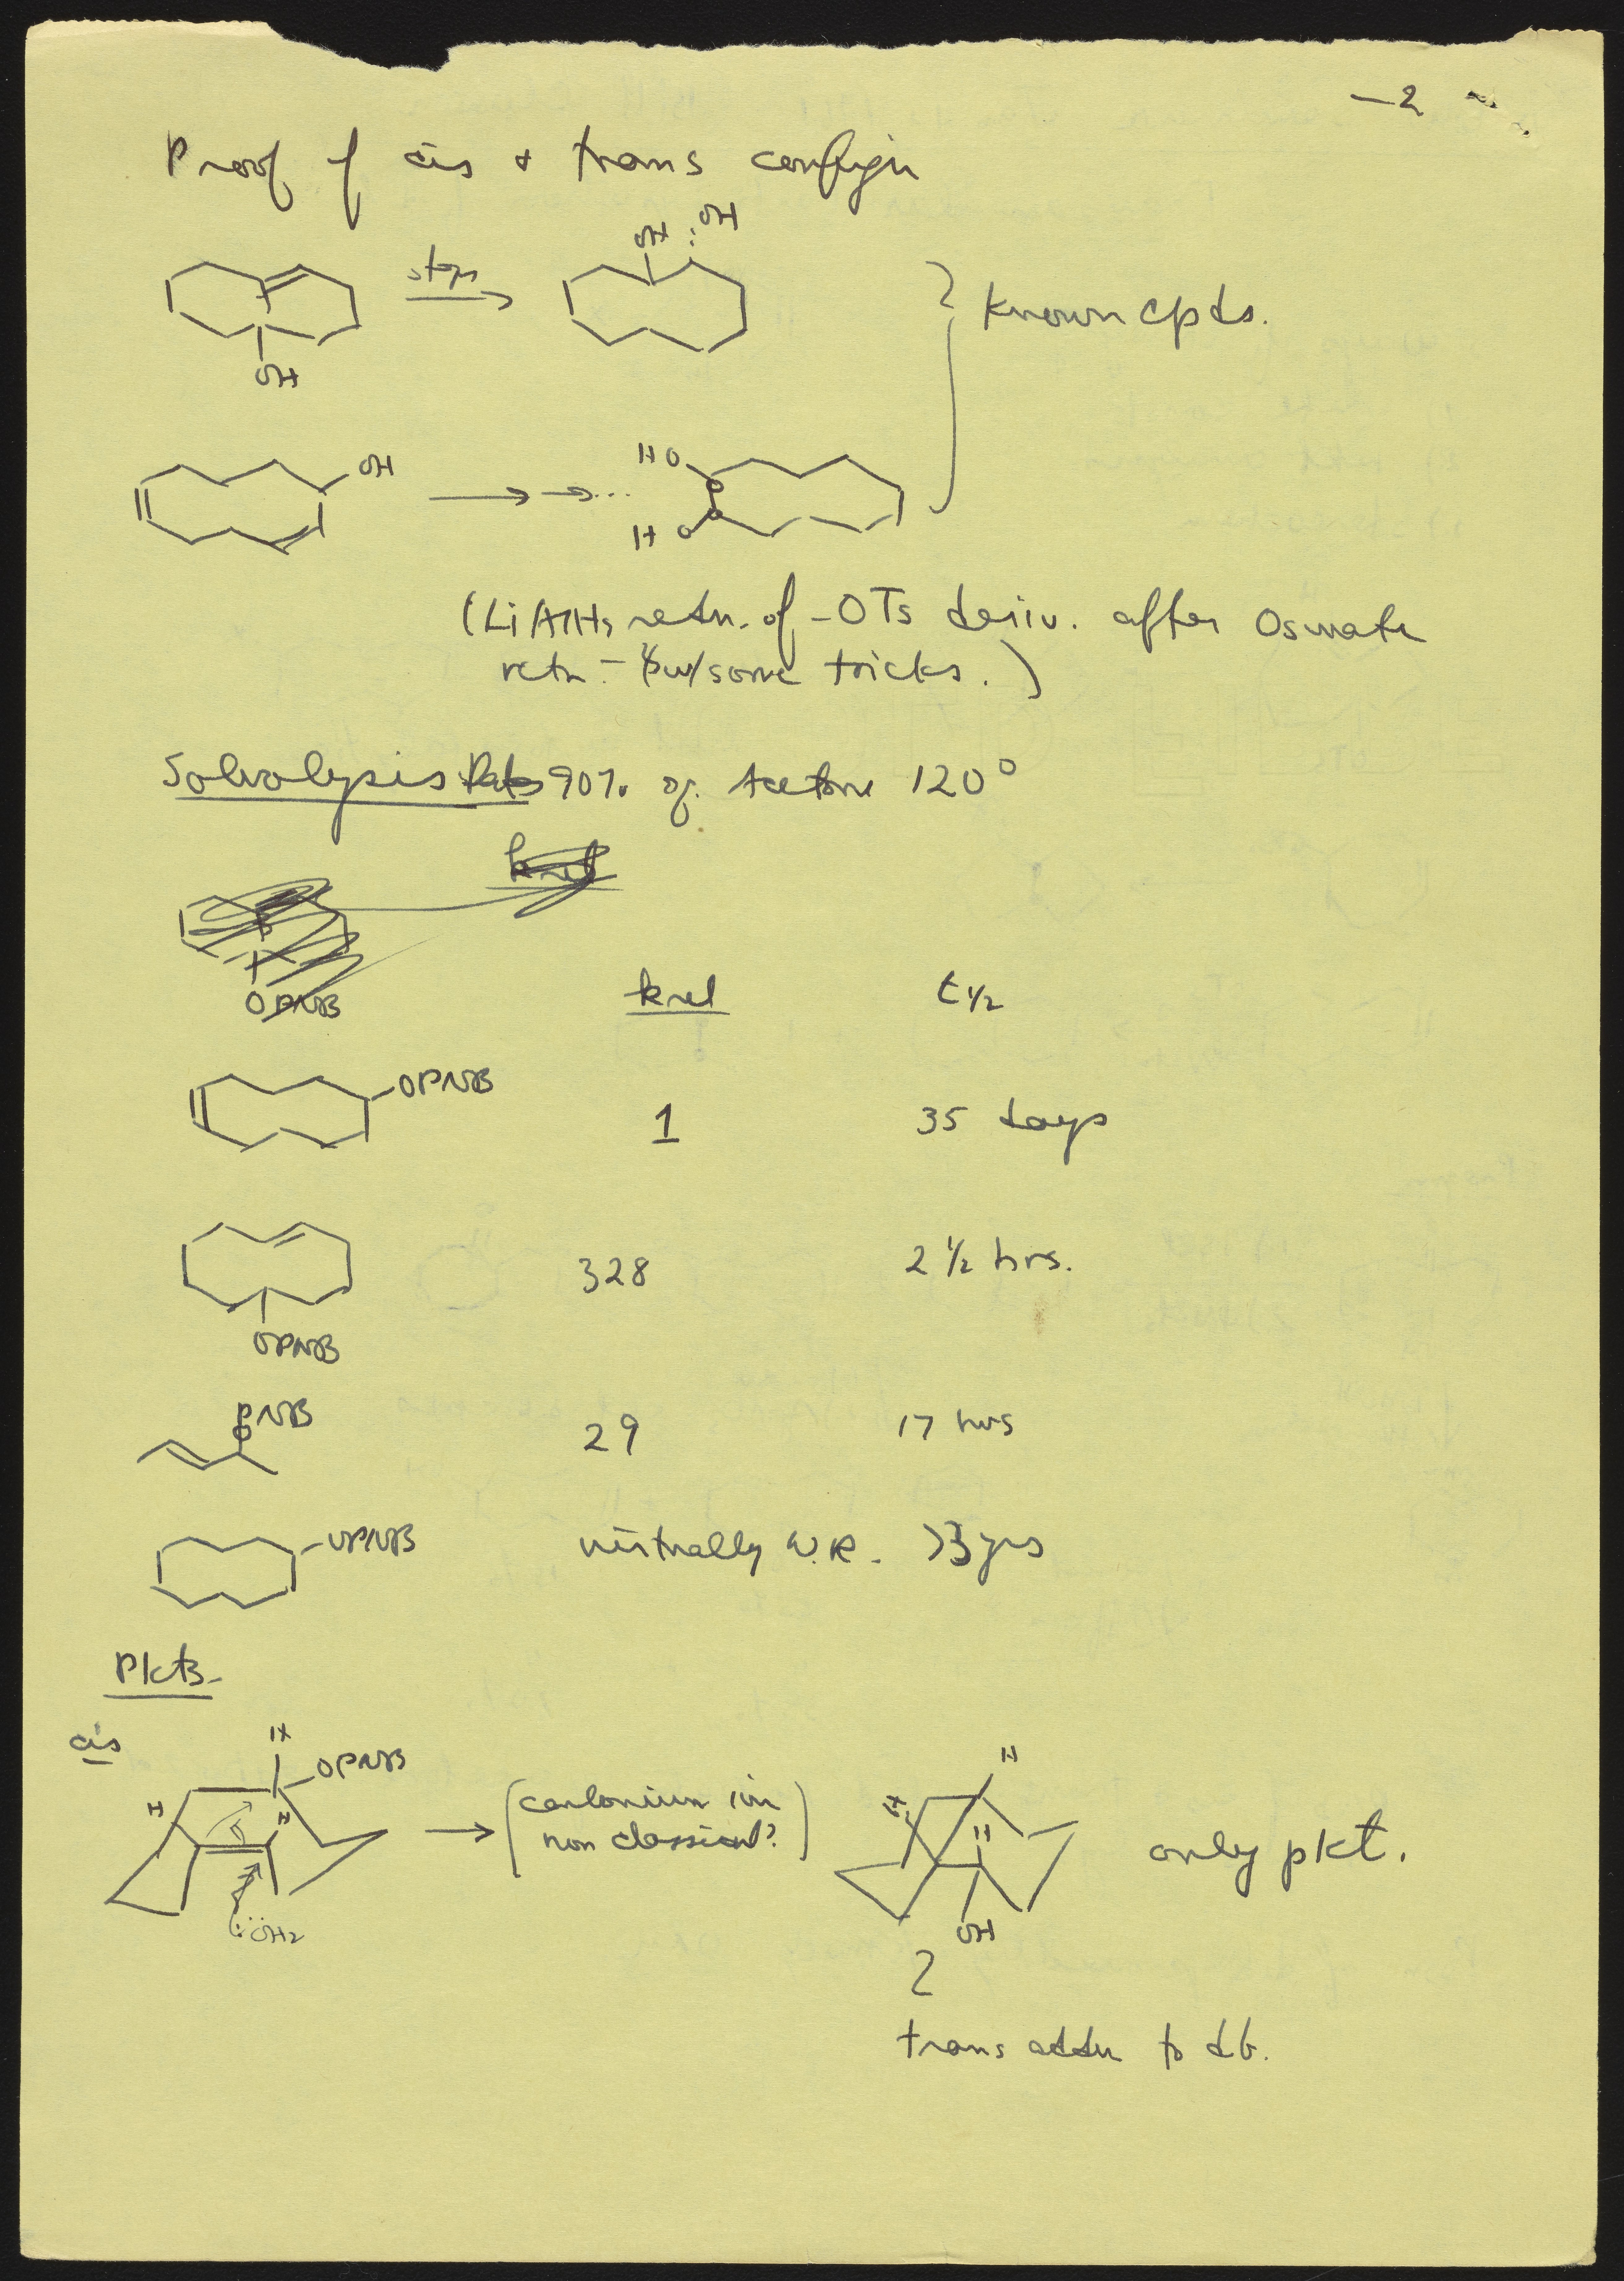 —2
Proof of cis & trans config'n
OH OH
steps
Known cpds.
OH
OH
HO
HO
(LiAlH4 redn. of -OTs deriv. after Osmate
rctn - w/some tricks.)
Solvolysis Rates 90% aq. Acetone 120°
krel
OPNB
krel t½
OPNB
1 35 days
328 2½ hrs.
OPNB
PNB
O
29 17 hrs
OPNB virtually N.R. >3 yrs
Pdts.
cis
H
OPNB
H H
(carbonium ion
non classical?)
:ÖH2
H
H
H
OH
only pdt.
trans addn to db.